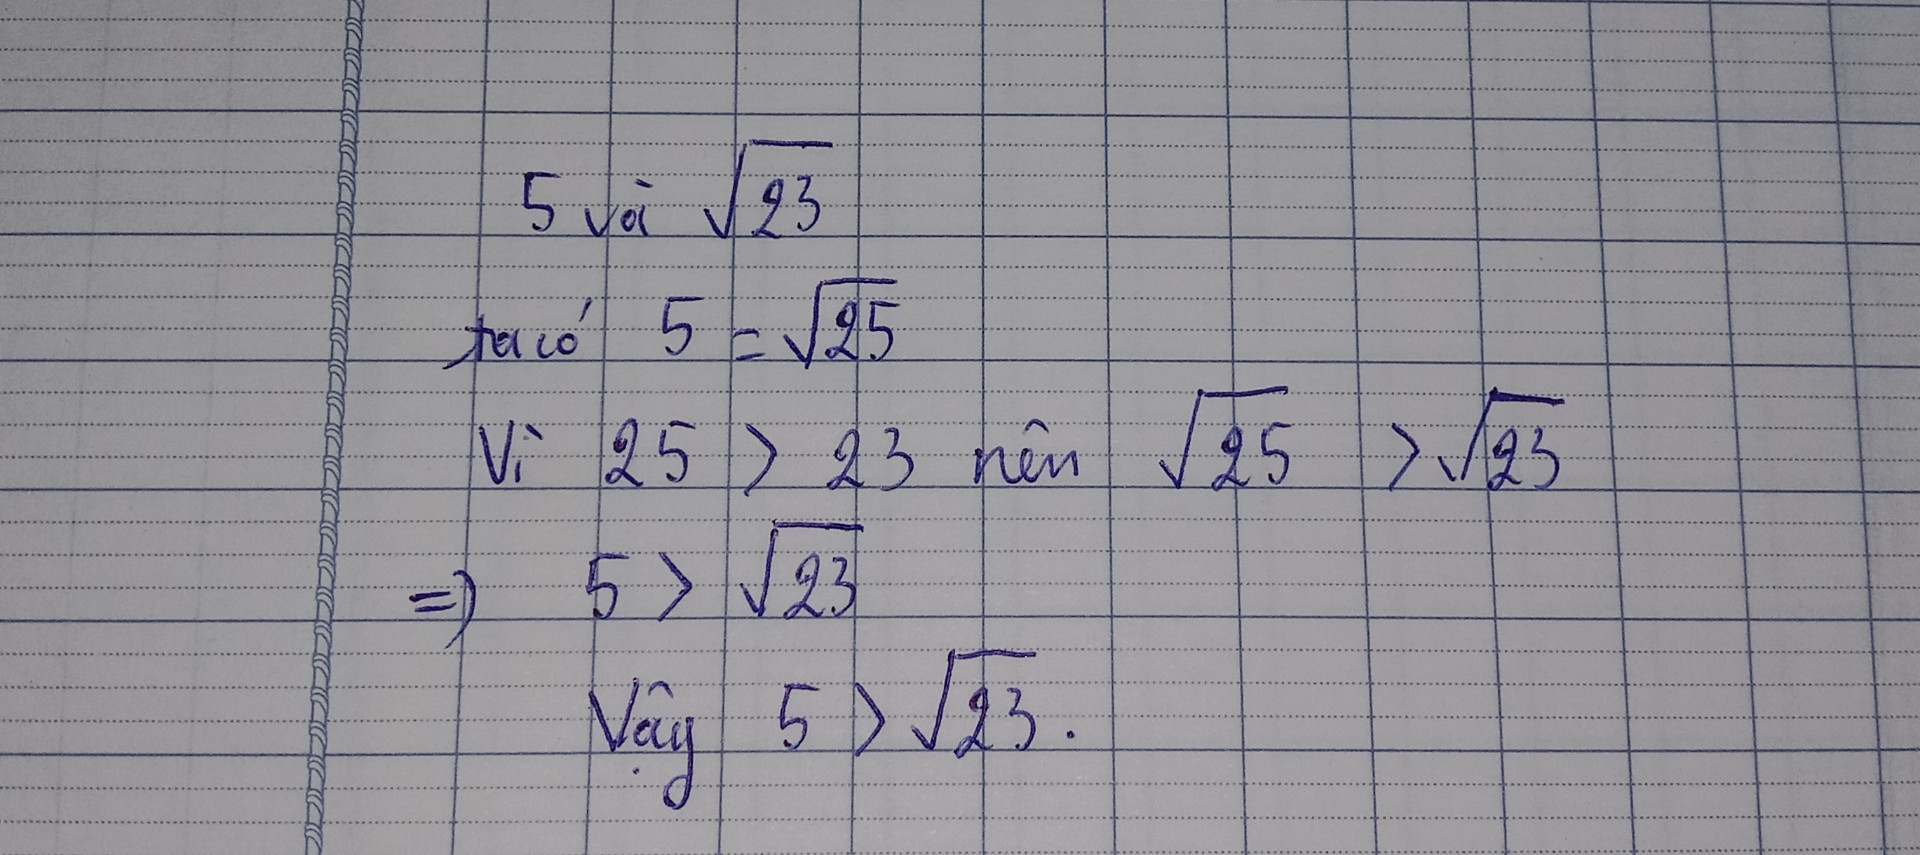 5 và √23
ta có 5 = √25
Vì 25 > 23 nên √25 > √23
=) 5 > √23
Vậy 5 > √23.